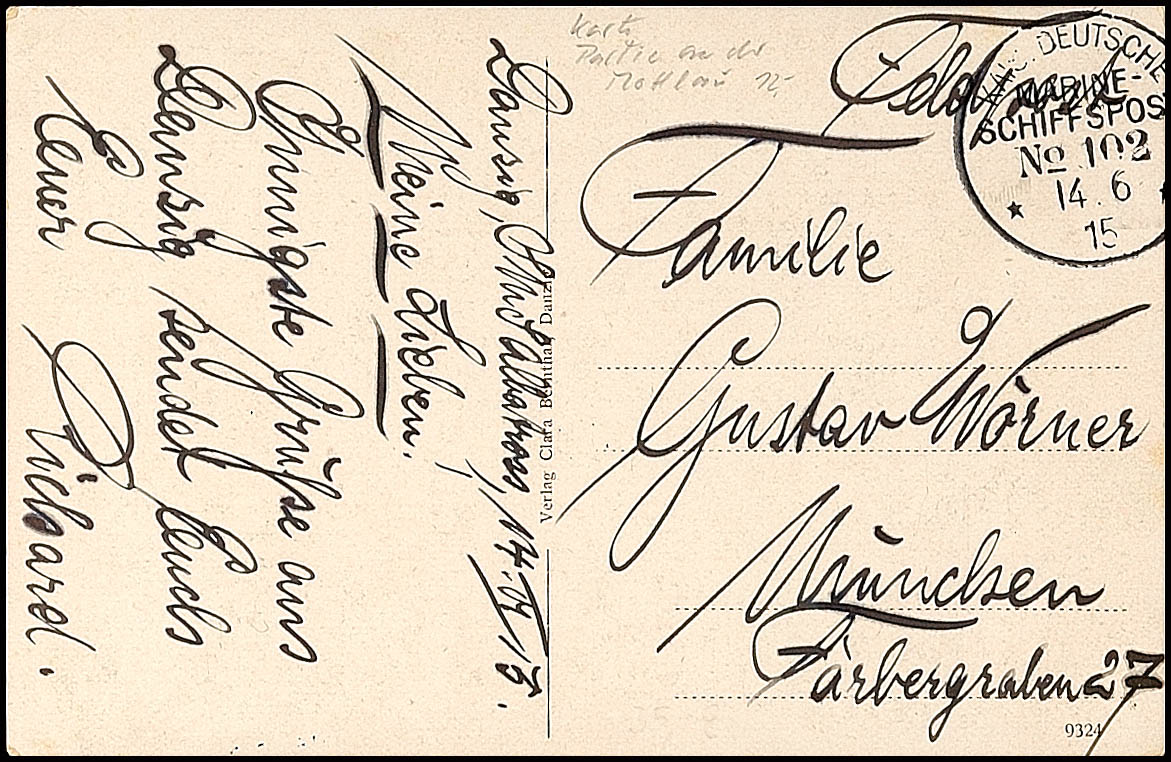 Danzig, SMS Albatross, 14. VI 15.
Meine Lieben!
Innigste Grüße aus
Danzig sendet Euch
Euer
Richard.
Verlag Clara Bernthal, Danzig
Partie an der
Mottlau
Feldpost
KAIS. DEUTSCHE
MARINE-
SCHIFFSPOST
No 102
14. 6
15
Familie
Gustav Wörner
München
Färbergraben 27
9324